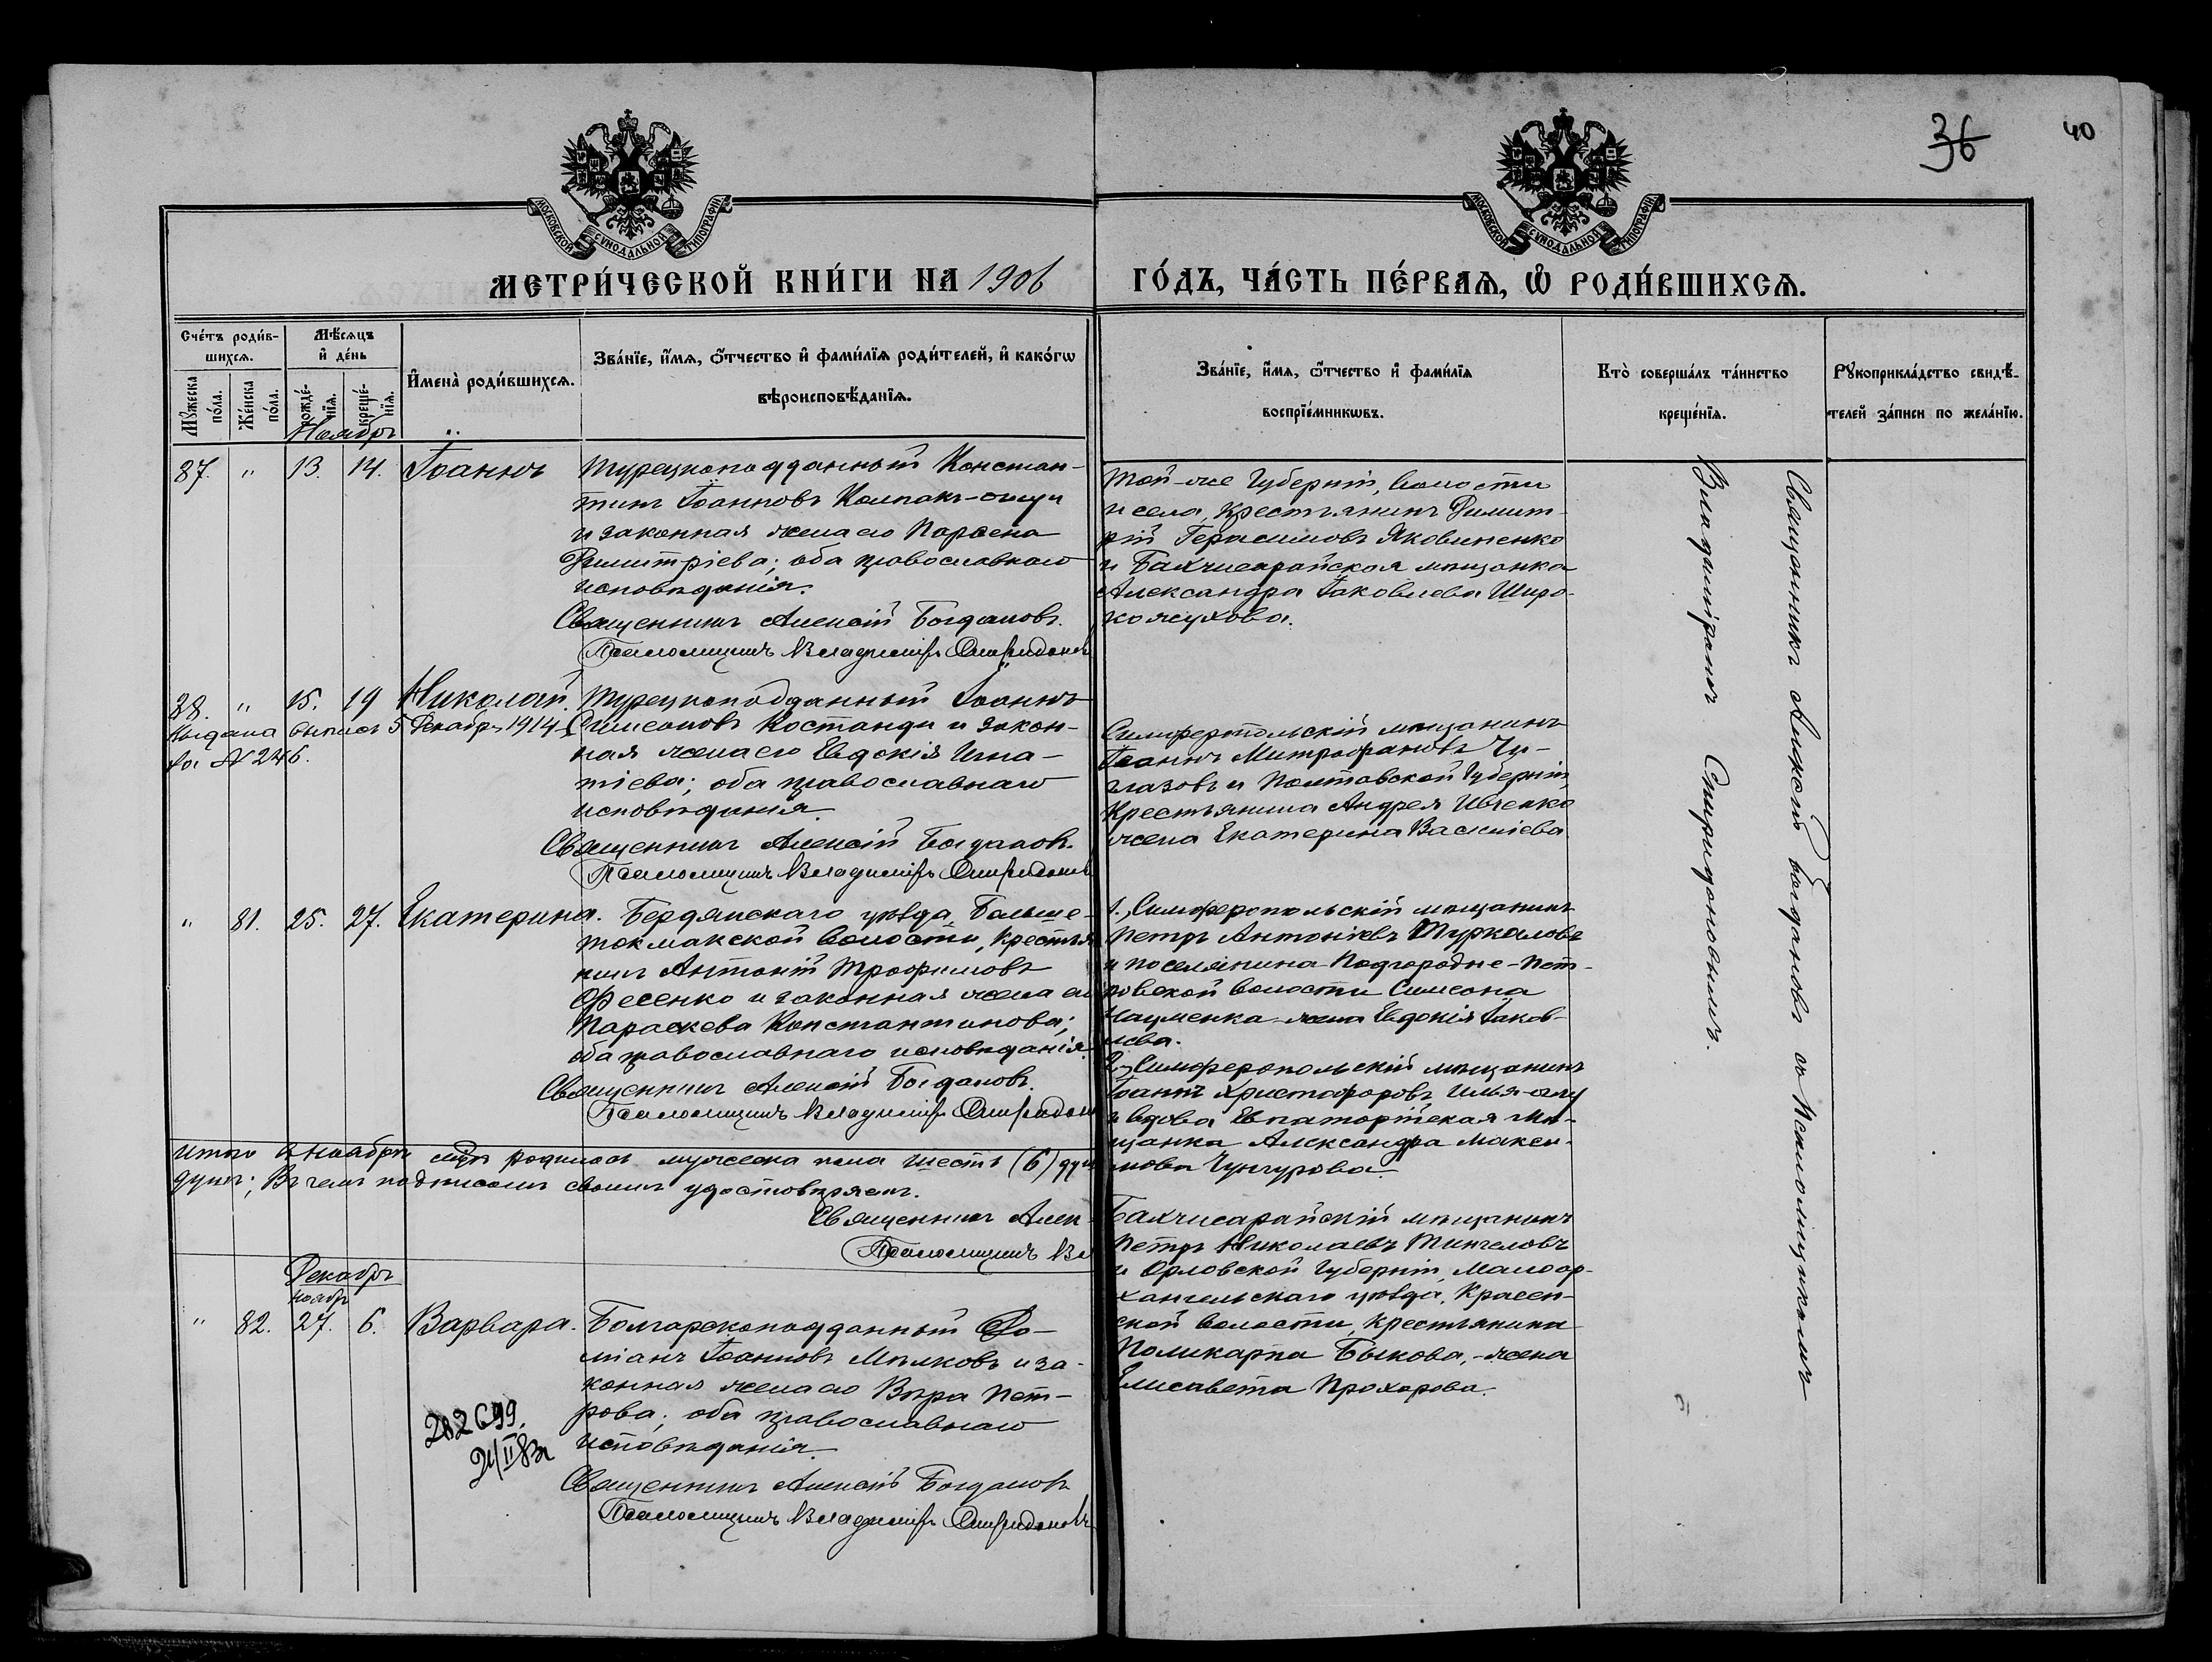 36
40
МОСКОВСКОЙ СѴНОДАЛЬНОЙ ТИПОГРАФІИ
МОСКОВСКОЙ СѴНОДАЛЬНОЙ ТИПОГРАФІИ
МЕТРИ́ЧЕСКОЙ КНИ́ГИ НА 1906
ГО́ДЪ, ЧА́СТЬ ПЕ́РВАѦ, Ѽ РОДИ́ВШИХСѦ.
Сче́тъ роди́в-
шихсѧ.
Мꙋ́жеска по́ла.
Же́нска по́ла.
Мѣ́сѧцъ
и҆ де́нь
рожде́-
нїѧ.
креще́-
нїѧ.
И҆мена̀ роди́вшихсѧ.
Зва́нїе, и҆́мѧ, ѻ҆́тчество и҆ фами́лїѧ роди́телей, и҆ како́гѡ
вѣроисповѣ́данїѧ.
Зва́нїе, и҆́мѧ, ѻ҆́тчество и҆ фами́лїѧ
воспрїе́мникѡвъ.
Кто̀ соверша́лъ та́инство
креще́нїѧ.
Рꙋкоприкла́дство свидѣ́-
телей за́писи по жела́нїю.
Ноябрь
87. " 13. 14. Іоаннъ Турецкоподданный Констан-
тинъ Іоанновъ Колпакъ-оглу
и законная жена его Парѳена
Димитріева; оба православнаго
исповѣданія.
Священникъ Алексій Богдановъ.
Псаломщикъ Владиміръ Спиридоновъ
Той-же Губерніи, волости
и села, крестьянинъ Димит-
рій Герасимовъ Яковиненко
и Бахчисарайская мѣщанка
Александра Іаковлева Широ-
кожухова.
88. " 15. 19 Николай. Турецкоподданный Іоаннъ
Выдана выпись 5 Декабря 1914 г.
за № 246.
Симеоновъ Костанди и закон-
ная жена его Евдокія Игна-
тіева; оба православнаго
исповѣданія.
Священникъ Алексій Богдановъ.
Псаломщикъ Владиміръ Спиридоновъ
Симферопольскій мѣщанинъ
Іоаннъ Митрофановъ Чу-
глазовъ и Полтавской Губерніи,
Крестьянина Андрея Ивченко
жена Екатерина Василіева
" 81. 25. 27. Екатерина. Бердянскаго уѣзда, Больше-
токмакской волости, крестья
нинъ Антоній Трофимовъ
Фесенко и законная жена его
Параскева Константинова;
оба православнаго исповѣданія.
Священникъ Алексій Богдановъ.
Псаломщикъ Владиміръ Спиридоно
1., Симферопольскій мѣщанинъ
Петръ Антоніевъ Туркаловъ
и поселянина Подгородне-Пет-
ровской волости Симеона
Науменка жена Евдокія Іаков-
лева.
2., Симферопольскій мѣщанинъ
Іоаннъ Христофоровъ Илья-оглу
и вдова Евпаторійская мѣ-
щанка Александра Макси-
мова Чунгурова.
Итого въ Ноябрѣ мцѣ родилось мужеска пола шесть (6) душ
душъ; Въ чемъ подписомъ своимъ удостовѣряемъ.
Священникъ Алек
Псаломщикъ Вл
Декабрь
Ноябр
" 82. 27. 6. Варвара. Болгарскоподданный До-
міанъ Іоанновъ Мѣлковъ и за-
конная жена его Вѣра Пет-
рова; оба православнаго
исповѣданія.
Священникъ Алексій Богдановъ
Псаломщикъ Владиміръ Спиридоновъ
Бахчисарайскій мѣщанинъ
Петръ Николаевъ Тингеловъ
и Орловской Губерніи, Малоар-
хангельскаго уѣзда, Красен-
ской волости, крестьянина
Поликарпа Быкова, -жена
Елисавета Прохорова.
282 С 99.
21/II 83
Священникъ Алексій Богдановъ съ Псаломщикомъ
Владиміромъ Спиридоновымъ.